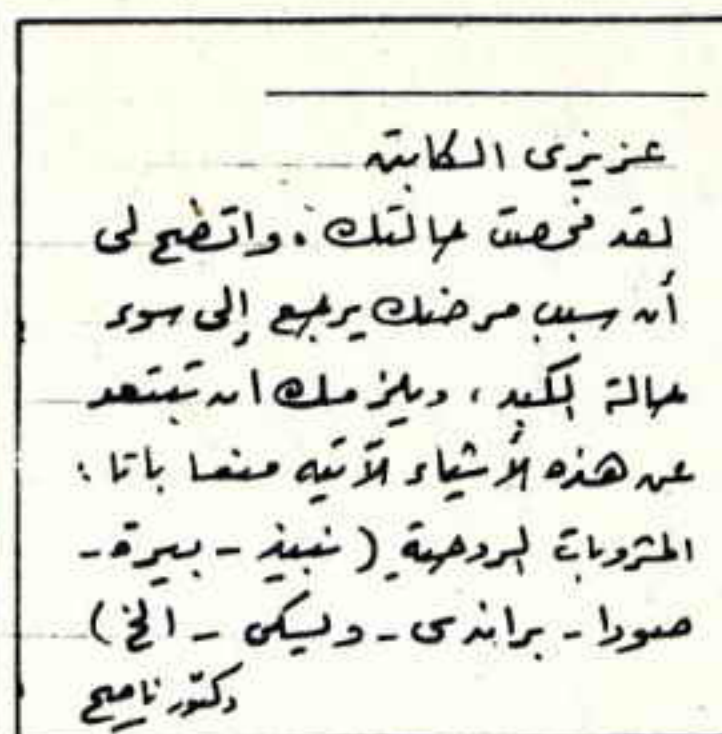 عزيزى الكابتن
لقد فحصت حالتك، واتضح لى
أن سبب مرضك يرجع إلى سوء
حالة الكبد، ويلزمك ان تبتعد
عن هذه الأشياء الآتيه منعا باتا:
المشروبات الروحية (نبيذ - بيرة -
صودا - براندى - ويسكى - الخ)
دكتور ناصح